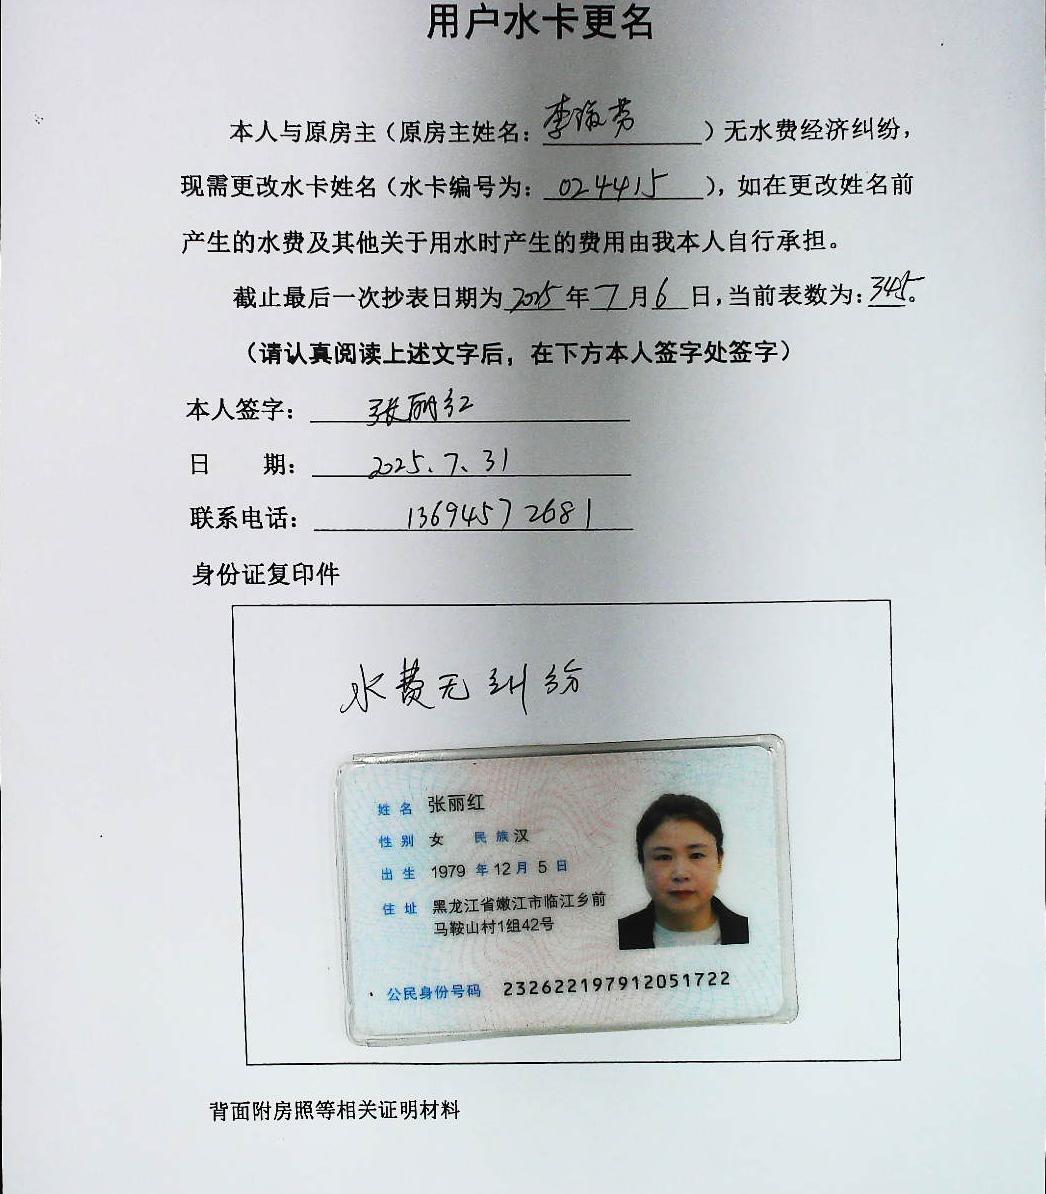 用户水卡更名
本人与原房主（原房主姓名：李海芳）无水费经济纠纷，
现需更改水卡姓名（水卡编号为：024415），如在更改姓名前
产生的水费及其他关于用水时产生的费用由我本人自行承担。
截止最后一次抄表日期为2025年7月6日，当前表数为：345。
（请认真阅读上述文字后，在下方本人签字处签字）
本人签字：张丽红
日 期：2025.7.31
联系电话：13694572681
身份证复印件
水费无纠纷
姓名 张丽红
性别 女 民族 汉
出生 1979 年 12 月 5 日
住址 黑龙江省嫩江市临江乡前
马鞍山村1组42号
公民身份号码 232622197912051722
背面附房照等相关证明材料